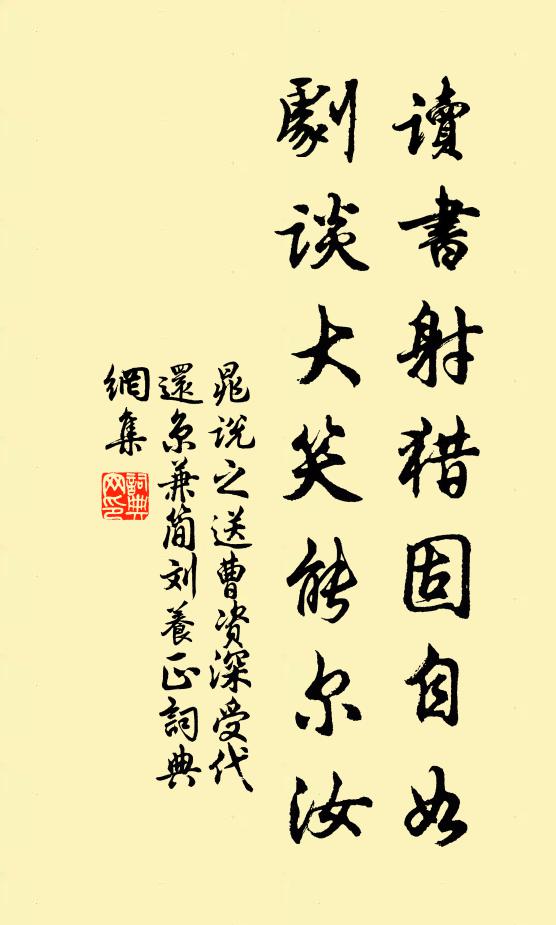 讀書射猎固自如
劇談大笑能尔汝
晁说之送曹资深受代
還京兼简刘養正詞典
網集
詞典
网印